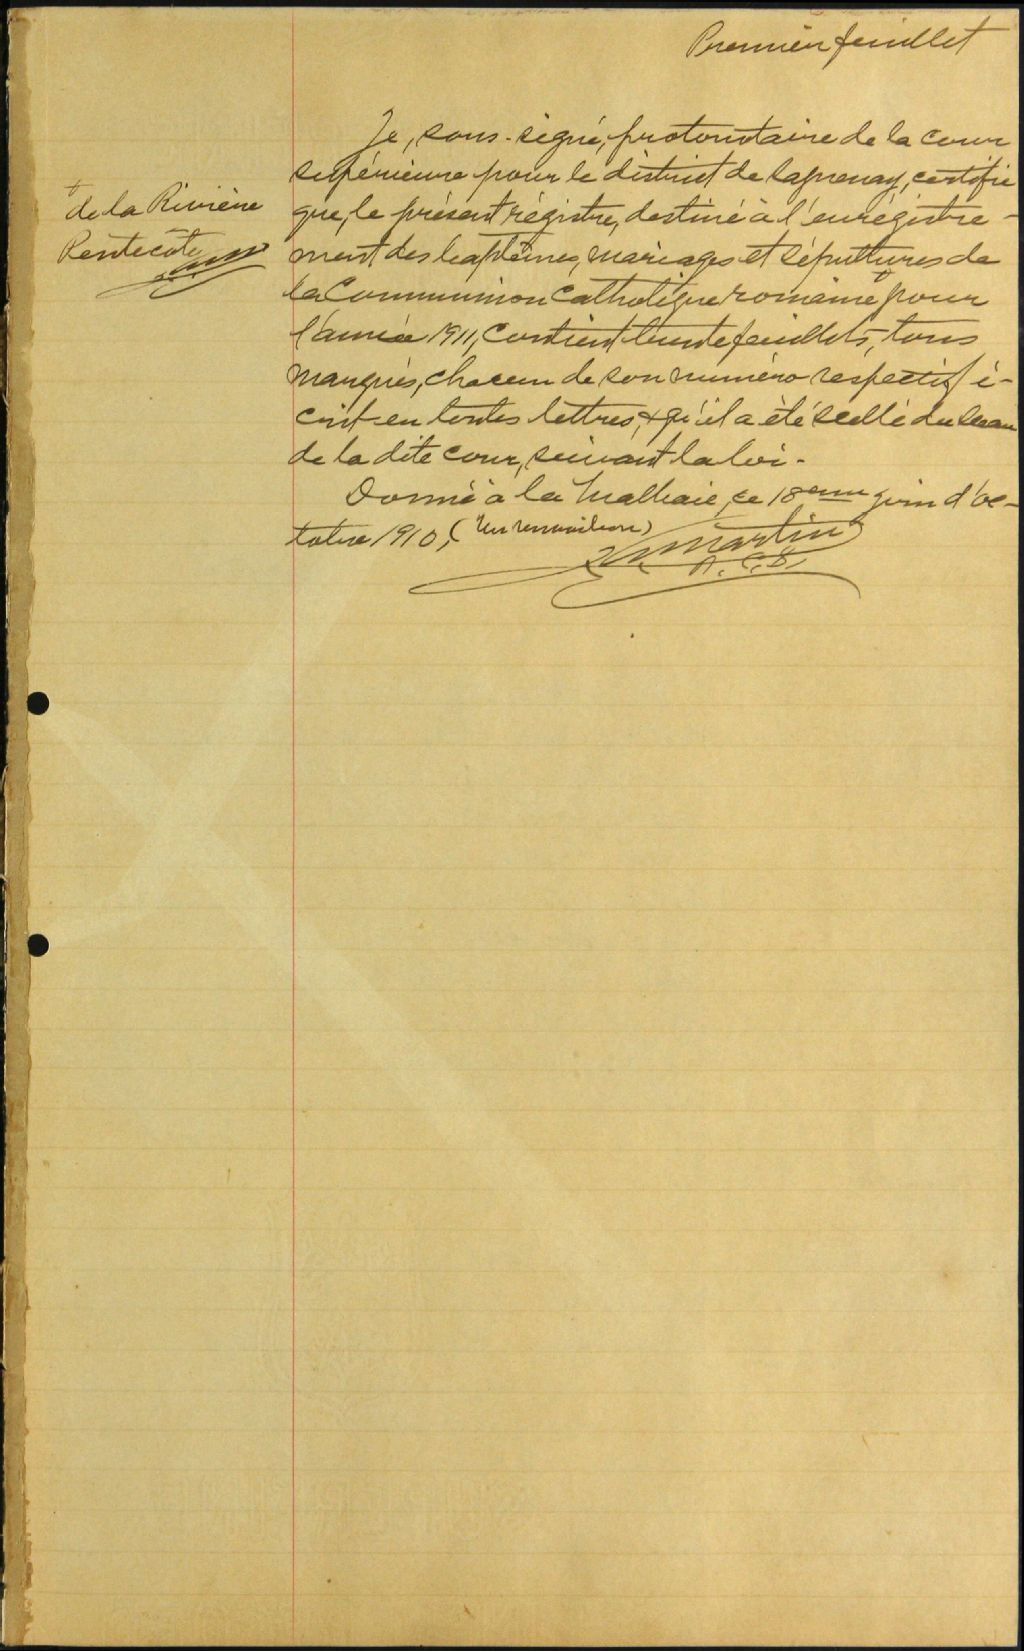 Premier feuillet
Je, sous-signé, protonotaire de la cour
supérieure pour le district de Saguenay, certifie
que, le présent régistre, destiné à l'enrégistre-
ment des baptêmes, mariages et sépultures de
la Communion Catholique romaine + pour
l'année 1911, contient trente feuillets, tous
marqués, chacun de son numéro respectif é-
crit en toutes lettres, & qu'il a été scellé du sceau
de la dite cour, suivant la loi -
Donné à la Malbaie, ce 18eme jour d'oc-
tobre 1910, (Un renvoi bon)
Martin
P. C. S.
+
de la Rivière
Pentecôte